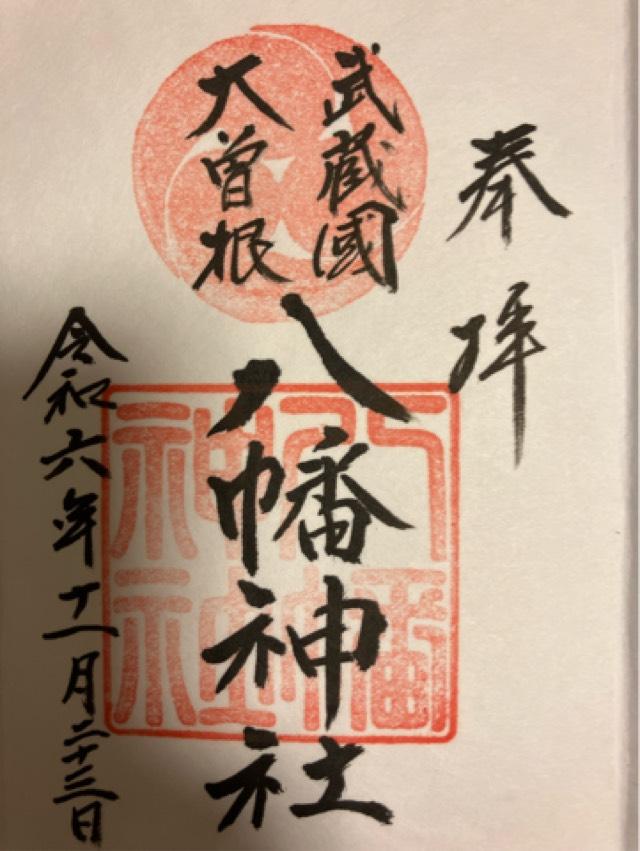 奉拝
武蔵國
大曽根
八幡神社
令和六年十一月二十三日
八幡
神社